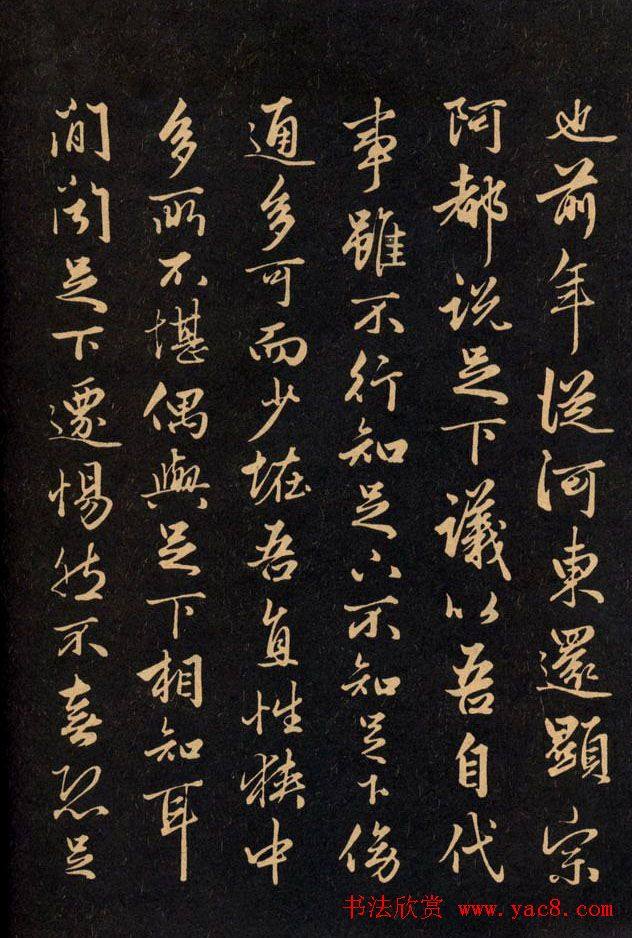 也前年從河東還顯宗
阿都説足下議以吾自代
事雖不行知足下不知足下傍
通多可而少怪吾直性狹中
多所不堪偶與足下相知耳
間聞足下遷惕然不喜恐足
书法欣赏 www.yac8.com